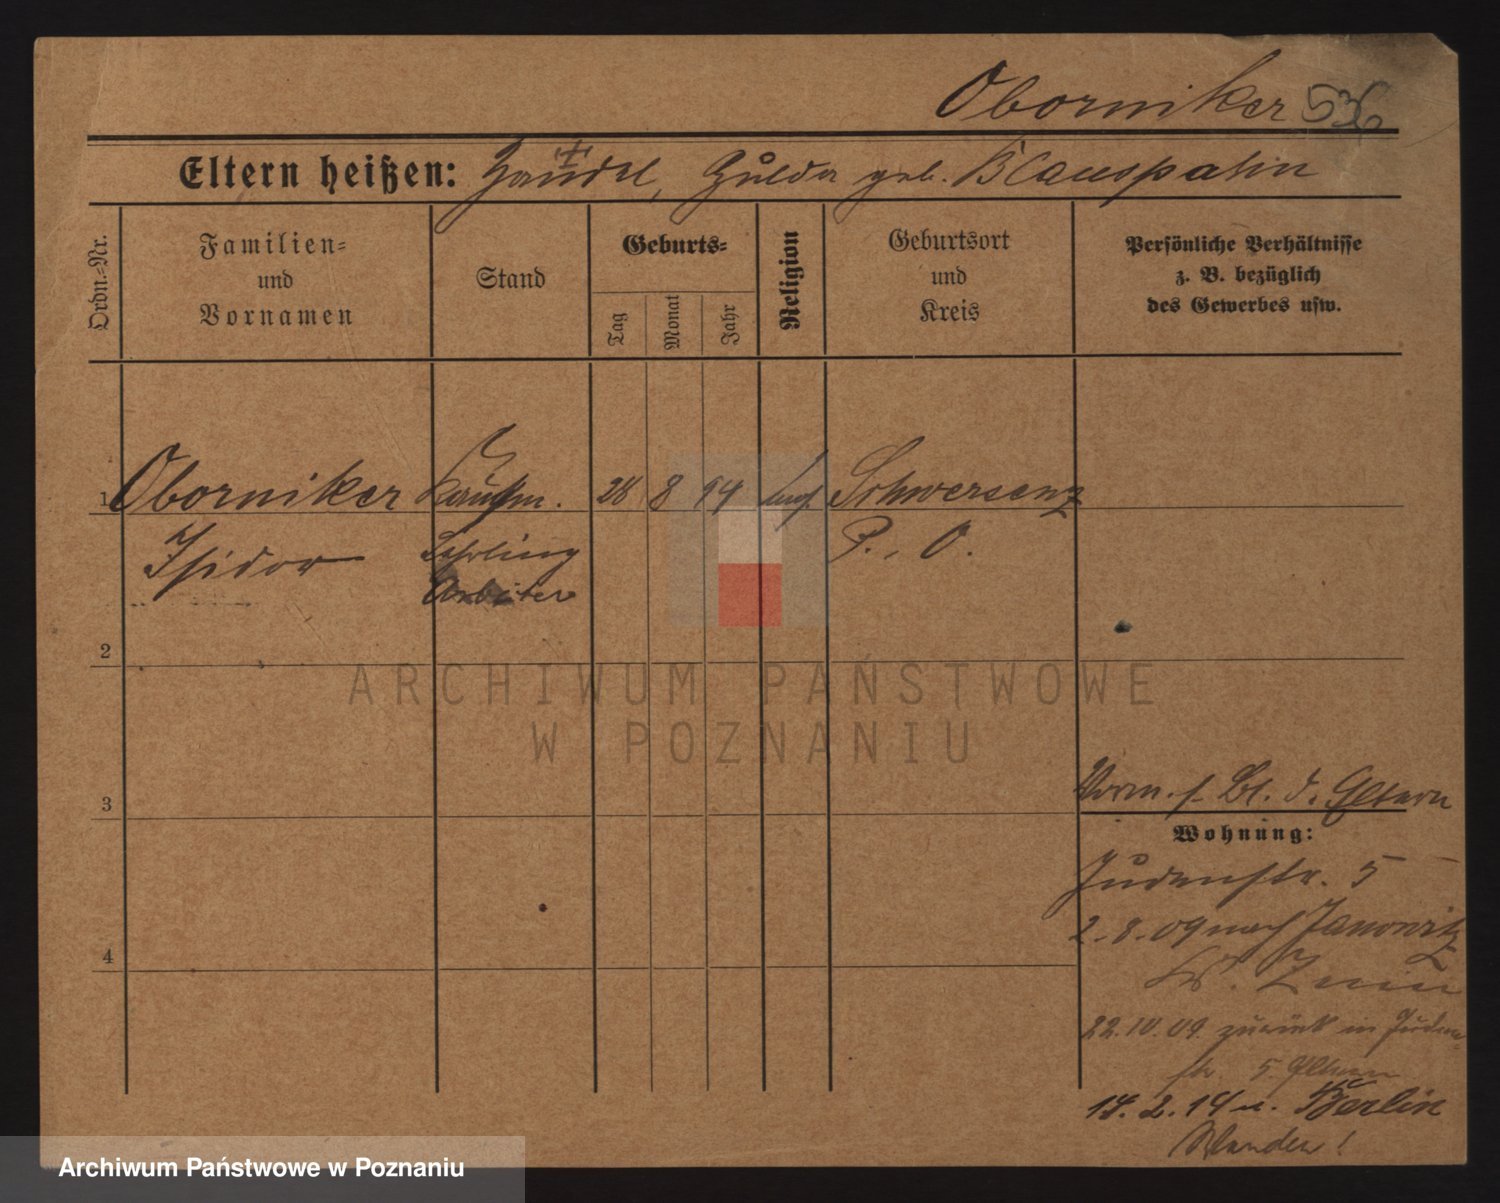 Oborniker 536
Eltern heißen: Gulda geb.
Ordn.-Nr.
Familien=
und
Vornamen
Stand
Geburts=
Tag
Monat
Jahr
Religion
Geburtsort
und
Kreis
Persönliche Verhältnisse
z. B. bezüglich
des Gewerbes usw.
1 Oborniker Kaufm. 28 8 94 Schwersenz
Isidor Lehrling P., O.
Arbeiter
2
ARCHIWUM PAŃSTWOWE
W POZNANIU
3
Vorm. s. Bl. d. Eltern
Wohnung:
Judenstr. 5
2.8.09 nach Janowitz
4
Kr. Znin
22.10.09. zurück in Juden-
str. 5 Eltern
14.2.14 n. Berlin
Archiwum Państwowe w Poznaniu